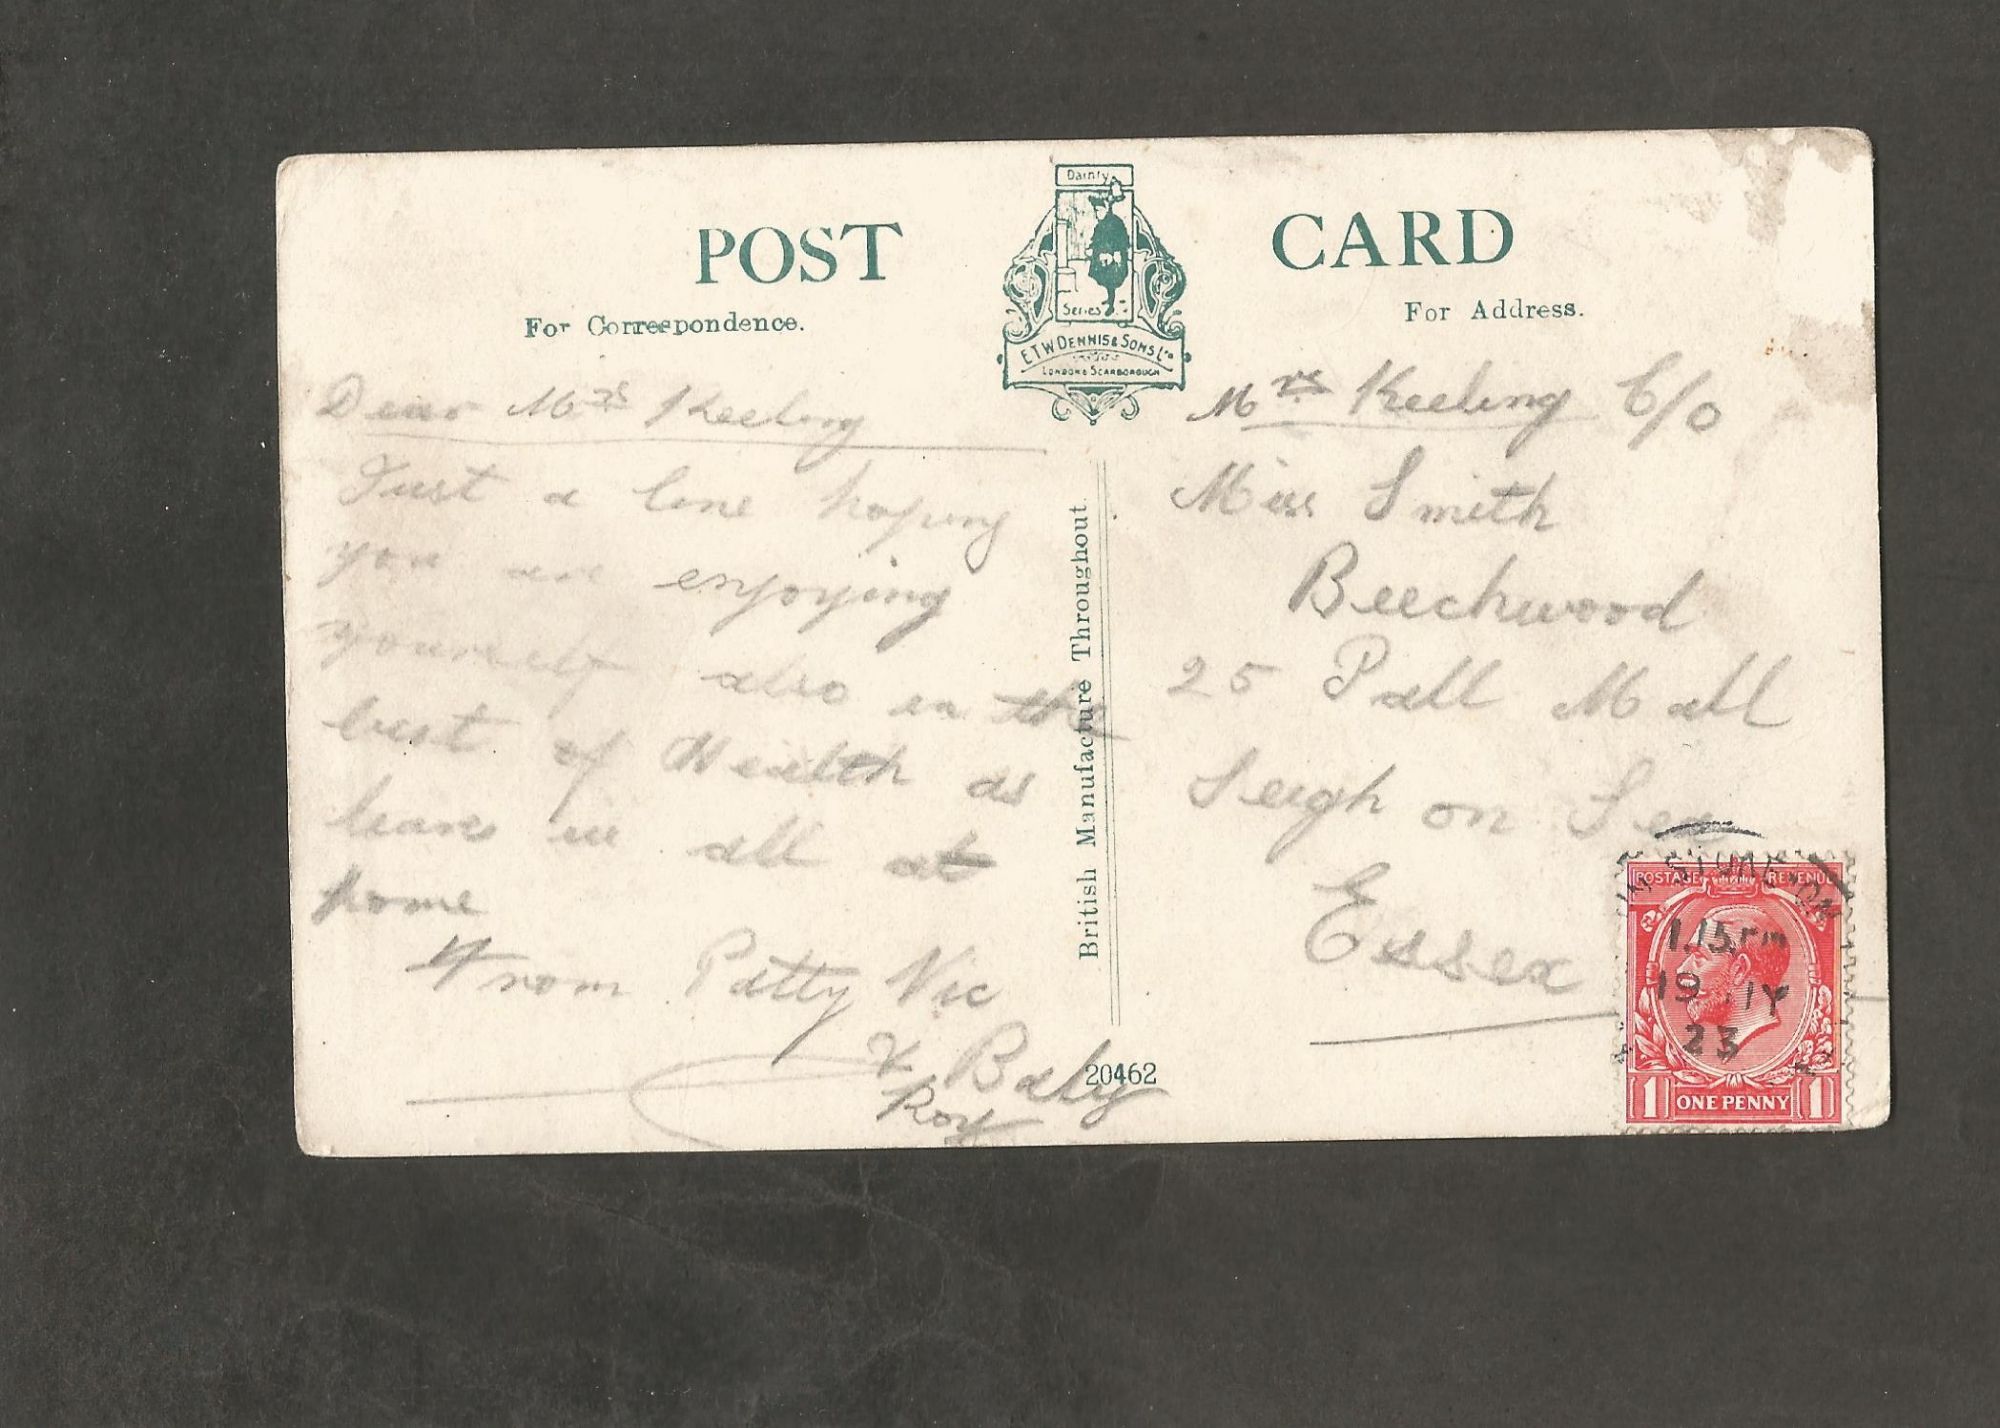 POST CARD
Dainty
Series
E.T.W. DENNIS & SONS LTD
LONDON & SCARBOROUGH
For Correspondence.
For Address.
Dear Mrs Keeling
Just a line hoping
you are enjoying
yourself also in the
best of Health as
leaves in all at
home
From Patty Vic
& Baby
Roy
British Manufacture Throughout.
20462
Mrs Keeling C/O
Miss Smith
Beechwood
25 Pall Mall
Leigh on Sea
Essex
POSTAGE REVENUE
1.15 PM
19 MY
23
1 ONE PENNY 1